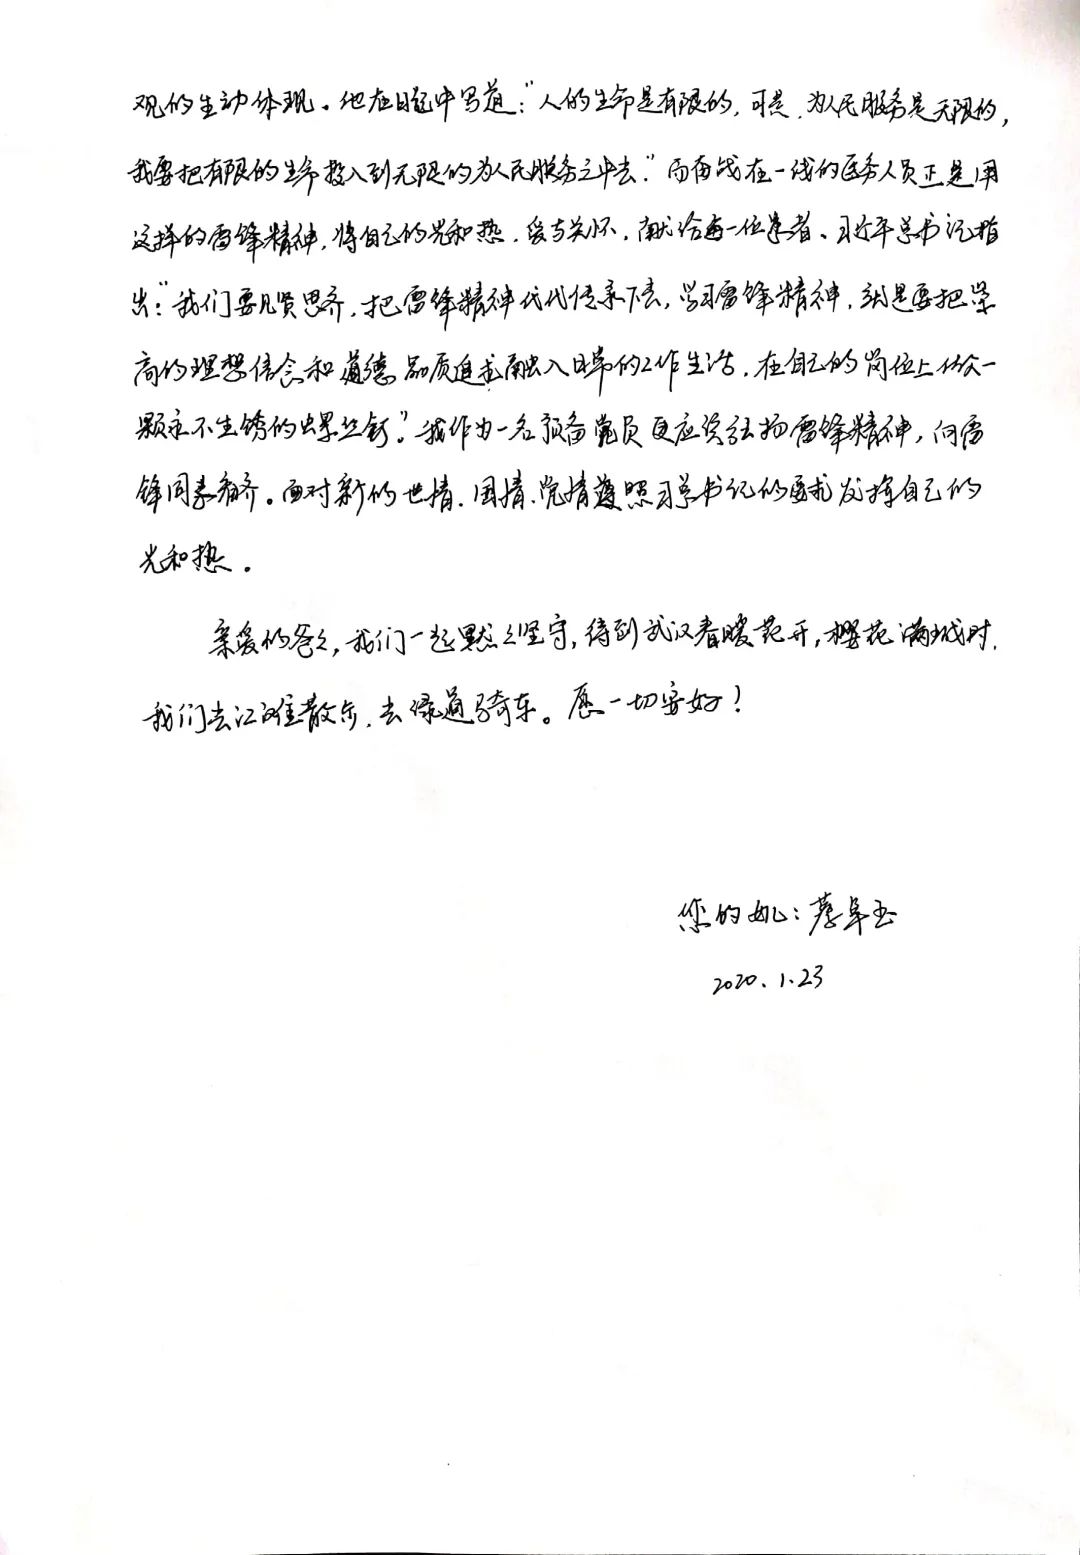 观的生动体现。他在日记中写道:“人的生命是有限的,可是,为人民服务是无限的,
我要把有限的生命投入到无限的为人民服务之中去。”而奋战在一线的医务人员正是用
这样的雷锋精神,将自己的光和热,爱与关怀,献给每一位患者。习近平总书记指
出:“我们要见贤思齐,把雷锋精神代代传承下去,学习雷锋精神,就是要把崇
高的理想信念和道德品质追求融入日常的工作生活,在自己的岗位上做一
颗永不生锈的螺丝钉。”我作为一名预备党员更应该弘扬雷锋精神,向雷
锋同志看齐。面对新的世情、国情、党情遵照习总书记的要求发挥自己的
光和热。
亲爱的爸爸,我们一起默默坚守,待到武汉春暖花开,樱花满城时,
我们去江滩散步,去绿道骑车。愿一切安好!
您的女儿:蔡卓玉
2020.1.23